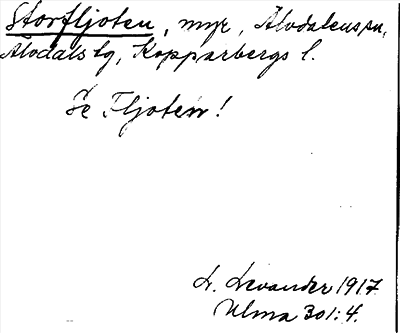 Storfljoten, myr, Älvdalens sn,
Älvdals tg, Kopparbergs l.
Se Fljoten!
L. Levander 1917
Ulma 301:4.